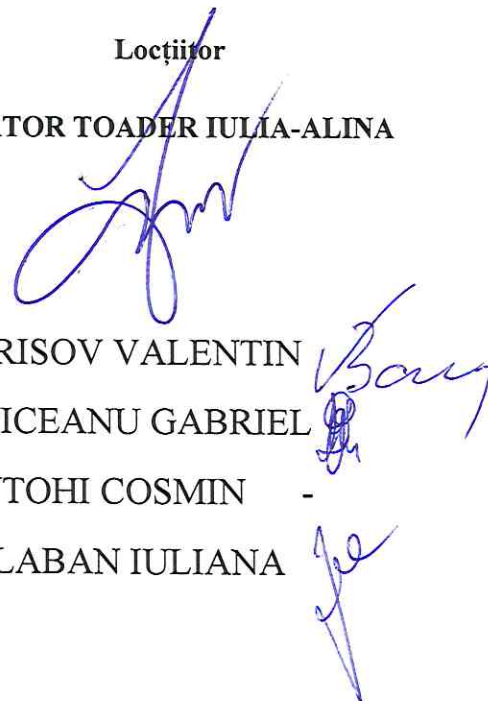 Locțiitor
ATOR TOADER IULIA-ALINA
RISOV VALENTIN
ICEANU GABRIEL
TOHI COSMIN -
LABAN IULIANA